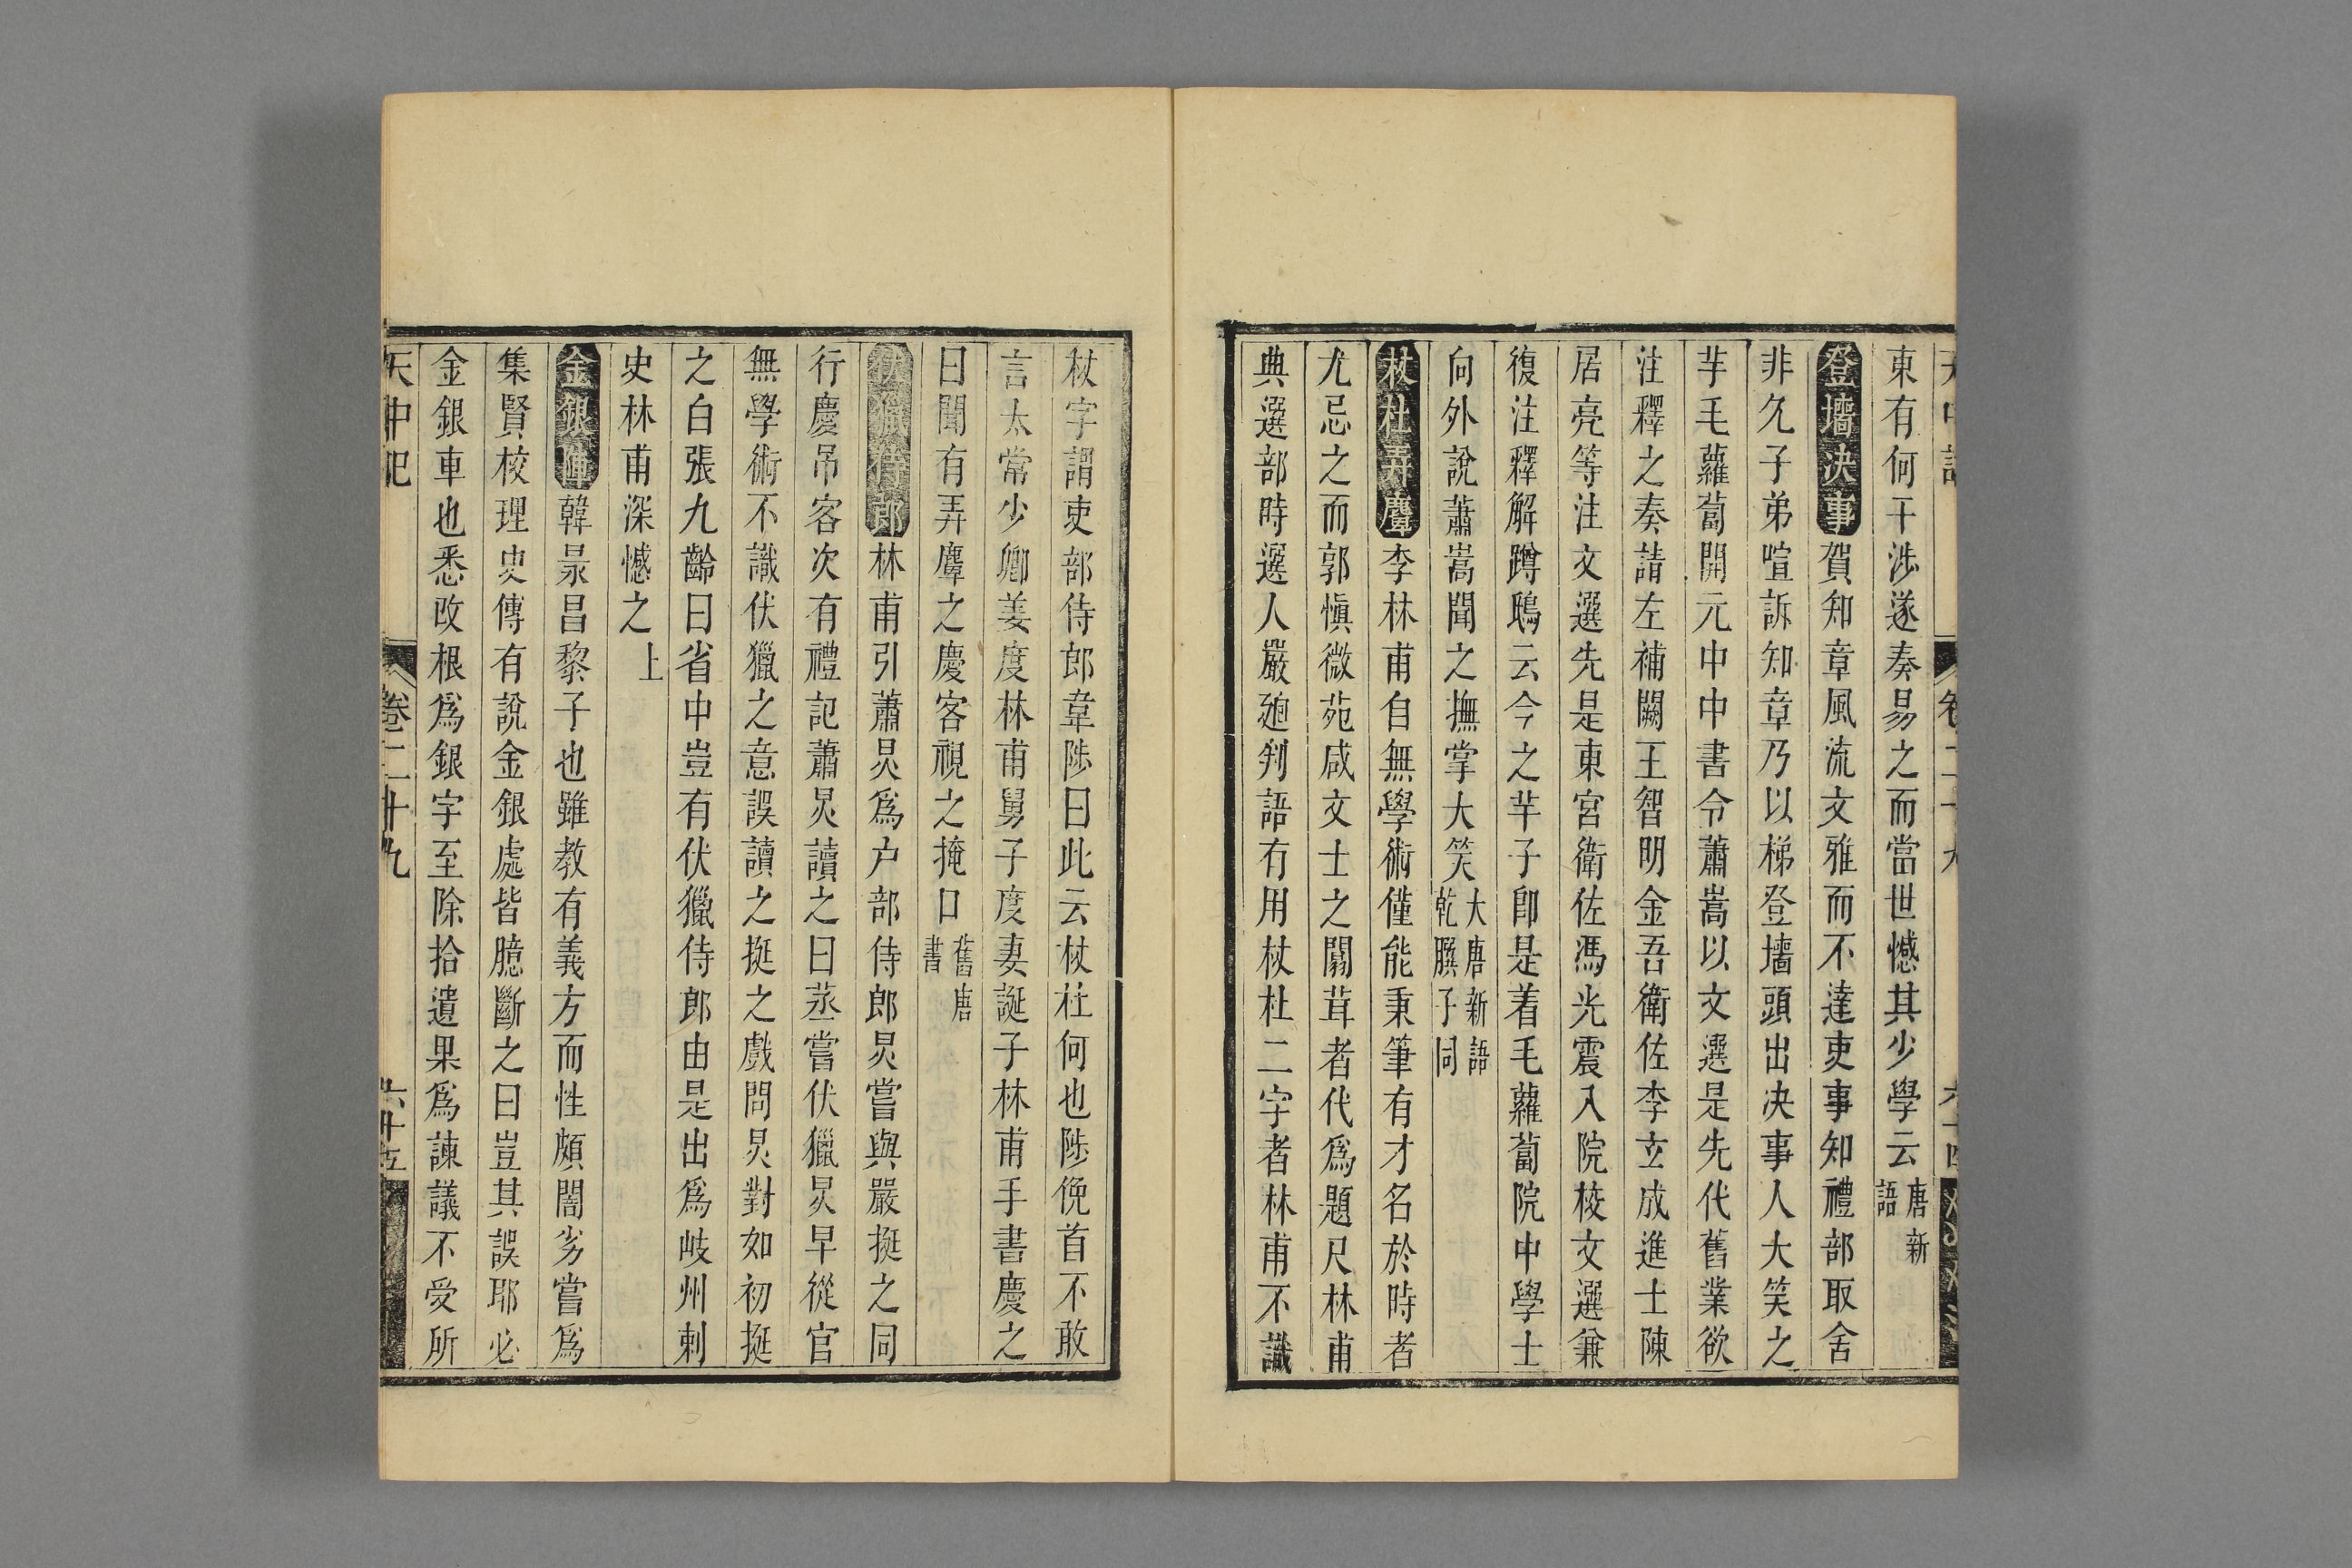 東有何干涉遂奏易之而當世憾其少學云唐新語
登墻決事賀知章風流文雅而不達吏事知禮部取舍
非允子弟喧訴知章乃以梯登墻頭出决事人大笑之
芋毛蘿蔔開元中中書令蕭嵩以文選是先代舊業欲
注釋之奏請左補闕王智明金吾衛佐李玄成進士陳
居亮等注文選先是東宮衛佐馮光震入院校文選兼
復注釋解蹲鴟云今之芋子卽是着毛蘿蔔院中學士
向外說蕭嵩聞之撫掌大笑大唐新語乾𦠆子同
杕杜弄麞李林甫自無學術僅能秉筆有才名於時者
尤忌之而郭愼微苑咸文士之闒茸者代爲題尺林甫
典選部時選人嚴迥判語有用杕杜二字者林甫不識
杕字謂吏部侍郎韋陟曰此云杖杜何也陟俛首不敢
言太常少卿姜度林甫舅子度妻誕子林甫手書慶之
曰聞有弄麞之慶客視之掩口舊唐書
伏獵侍郎林甫引蕭炅爲户部侍郎炅嘗與嚴挺之同
行慶吊客次有禮記蕭炅讀之曰蒸嘗伏獵炅早從官
無學術不識伏獵之意誤讀之挺之戲問炅對如初挺
之白張九齡曰省中豈有伏獵侍郎由是出爲岐州刺
史林甫深憾之上
金銀車韓㫤昌黎子也雖教有義方而性頗闇劣嘗爲
集賢校理史傳有說金銀處皆臆斷之曰豈其誤耶必
金銀車也悉改根爲銀字至除拾遺果爲諫議不受所
天中記
卷二十九
六十五